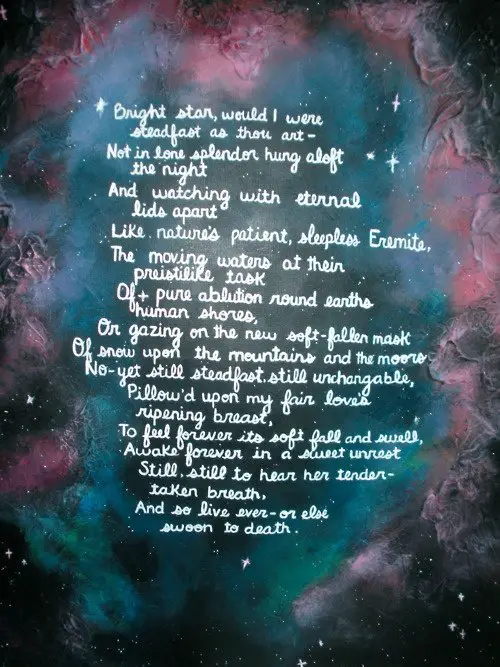 Bright star, would I were
steadfast as thou art-
Not in lone splendor hung aloft
the night
And watching with eternal
lids apart
Like nature's patient, sleepless Eremite,
The moving waters at their
preistilike task
Of + pure ablution round earths
human shores,
Or gazing on the new soft-fallen mask
Of snow upon the mountains and the moors
No-yet still steadfast.still unchangable,
Pillow'd upon my fair love's
ripening breast,
To feel forever its soft fall and swell,
Awake forever in a sweet unrest
Still, still to hear her tender-
taken breath,
And so live ever-or else
swoon to death.